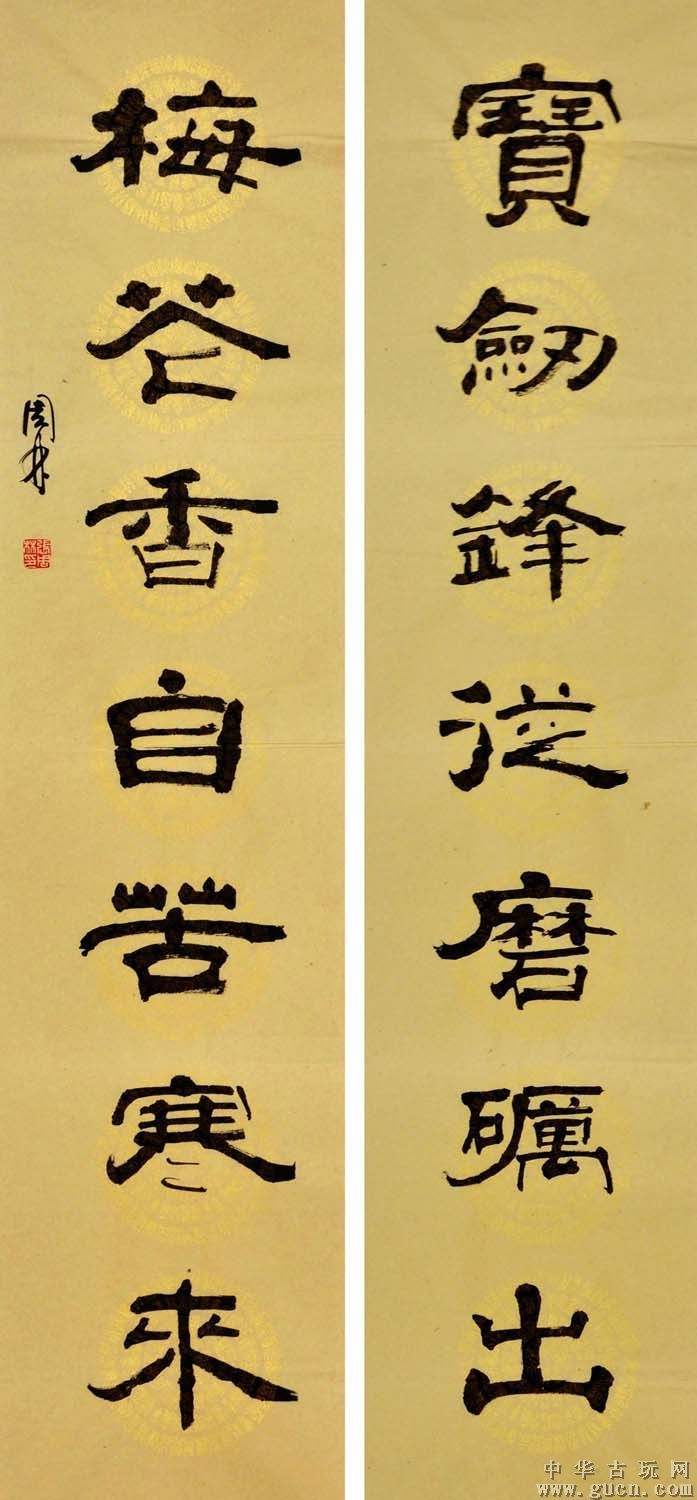 寶劒鋒從磨礪出
梅花香自苦寒來
周林
中华古玩网
www.gucn.com